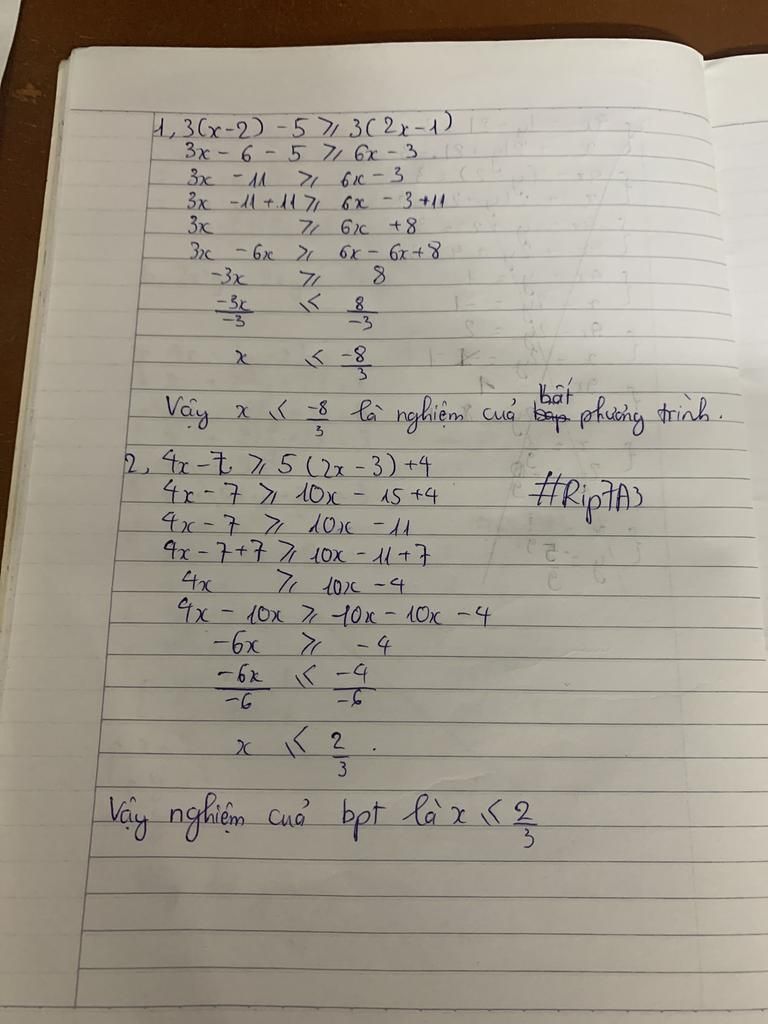 1, 3(x-2) - 5 ⩾ 3(2x-1)
3x - 6 - 5 ⩾ 6x - 3
3x - 11 ⩾ 6x - 3
3x - 11 + 11 ⩾ 6x - 3 + 11
3x ⩾ 6x + 8
3x - 6x ⩾ 6x - 6x + 8
-3x ⩾ 8
-3x/-3 ⩽ 8/-3
x ⩽ -8/3
Vậy x ⩽ -8/3 là nghiệm cuả bất phương trình.
2, 4x - 7 ⩾ 5(2x - 3) + 4
4x - 7 ⩾ 10x - 15 + 4
#Rip7A3
4x - 7 ⩾ 10x - 11
4x - 7 + 7 ⩾ 10x - 11 + 7
4x ⩾ 10x - 4
4x - 10x ⩾ 10x - 10x - 4
-6x ⩾ -4
-6x/-6 ⩽ -4/-6
x ⩽ 2/3.
Vậy nghiệm cuả bpt là x ⩽ 2/3